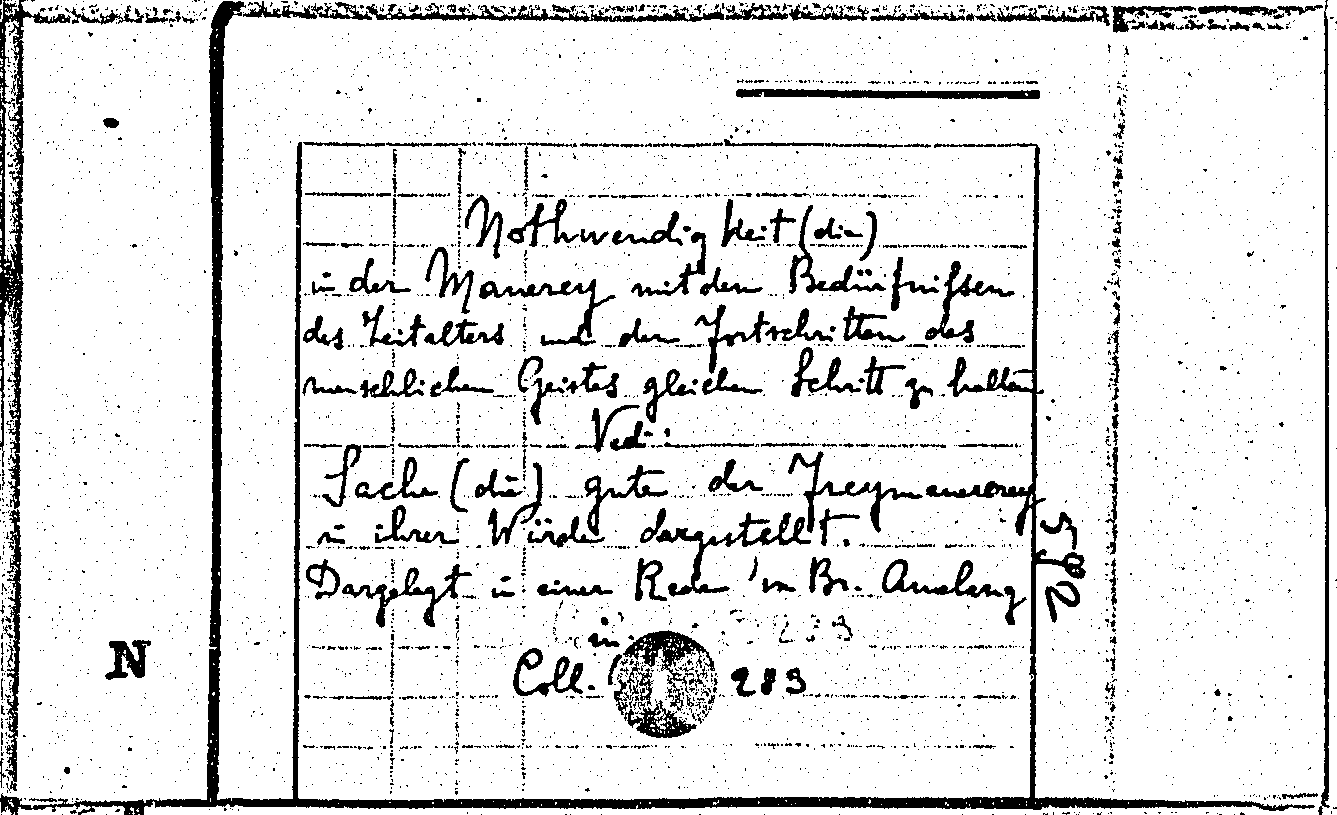 Nothwendigkeit (die)
in der Maurerey mit den Bedürfnissen
des Zeitalters und den Fortschritten des
menschlichen Geistes gleichen Schritt zu halten
Vid:
Sache (die) gute der Freymaurerey
in ihrer Würde dargestellt.
Dargelegt in einer Rede Br. Amelang
in
Coll. 283
N